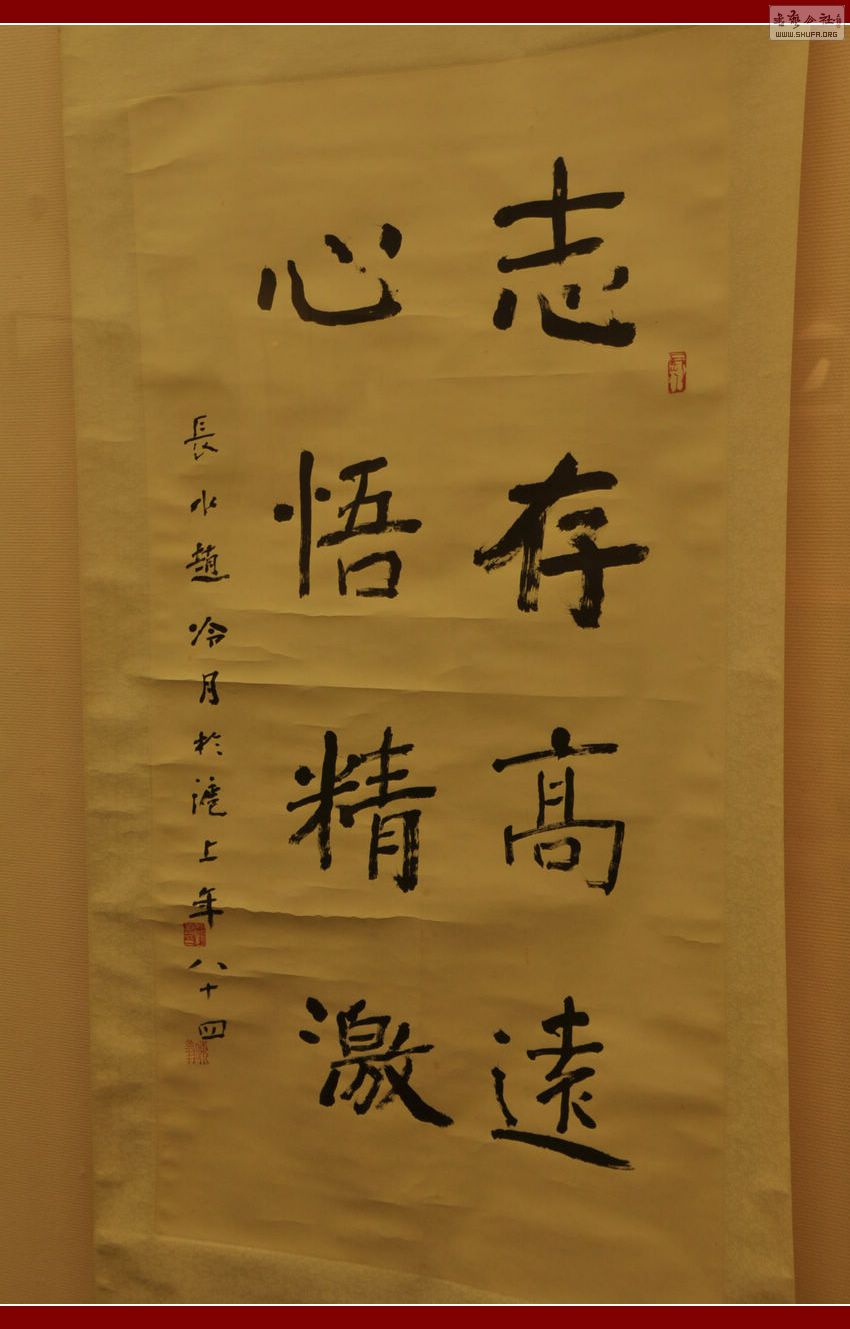 志存高遠
心悟精激
長水趙冷月於滬上年八十四
书艺公社
WWW.SHUFA.ORG